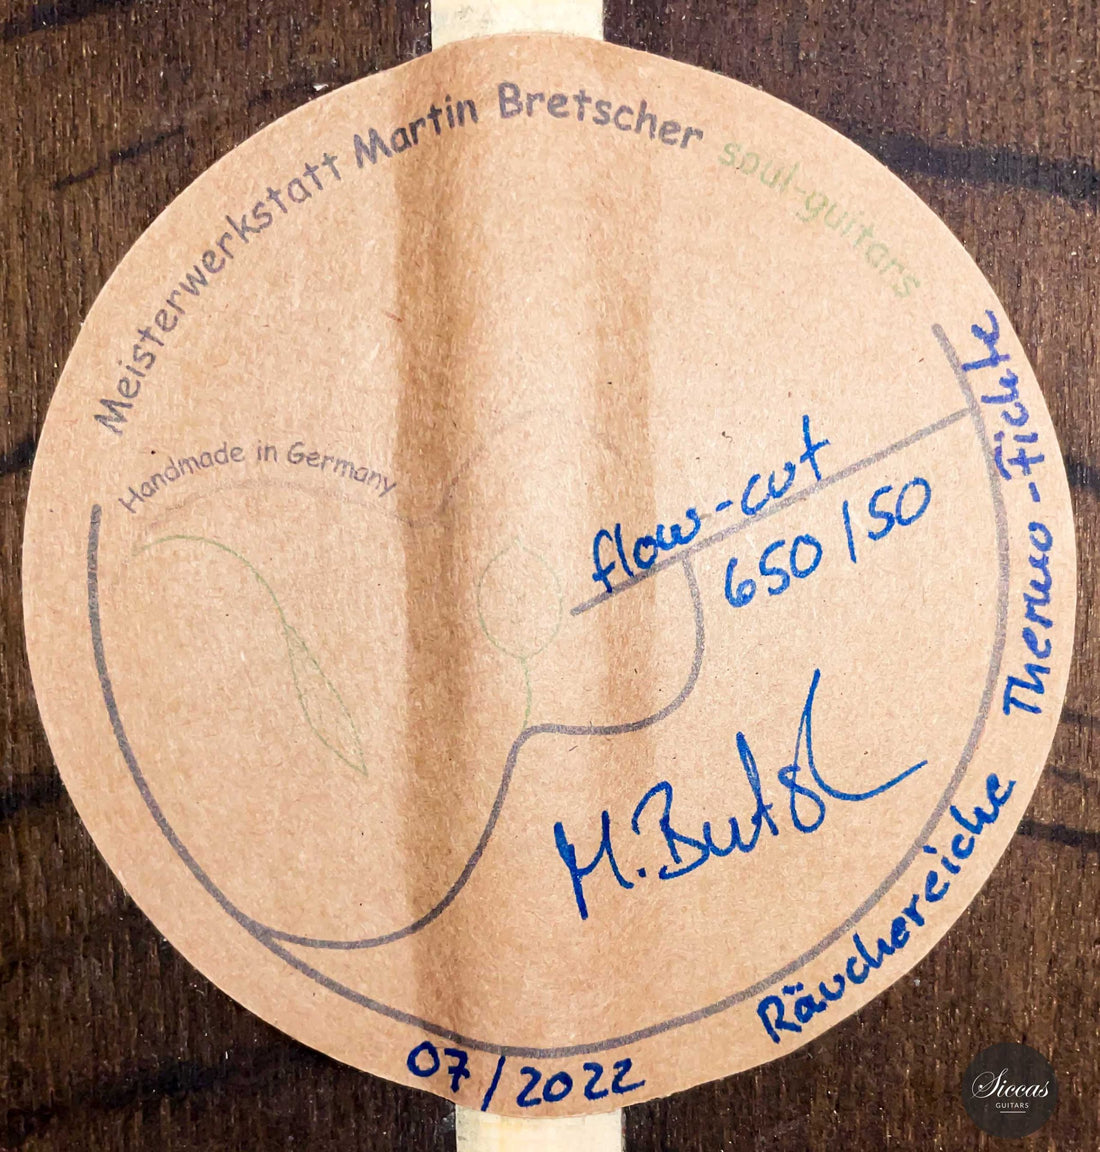 Meisterwerkstatt Martin Bretscher soul-guitars
Handmade in Germany
flow-cut
650/50
Thermo-Fichte
M. Bretsch
Räuchereiche
07/2022
Siccas
GUITARS